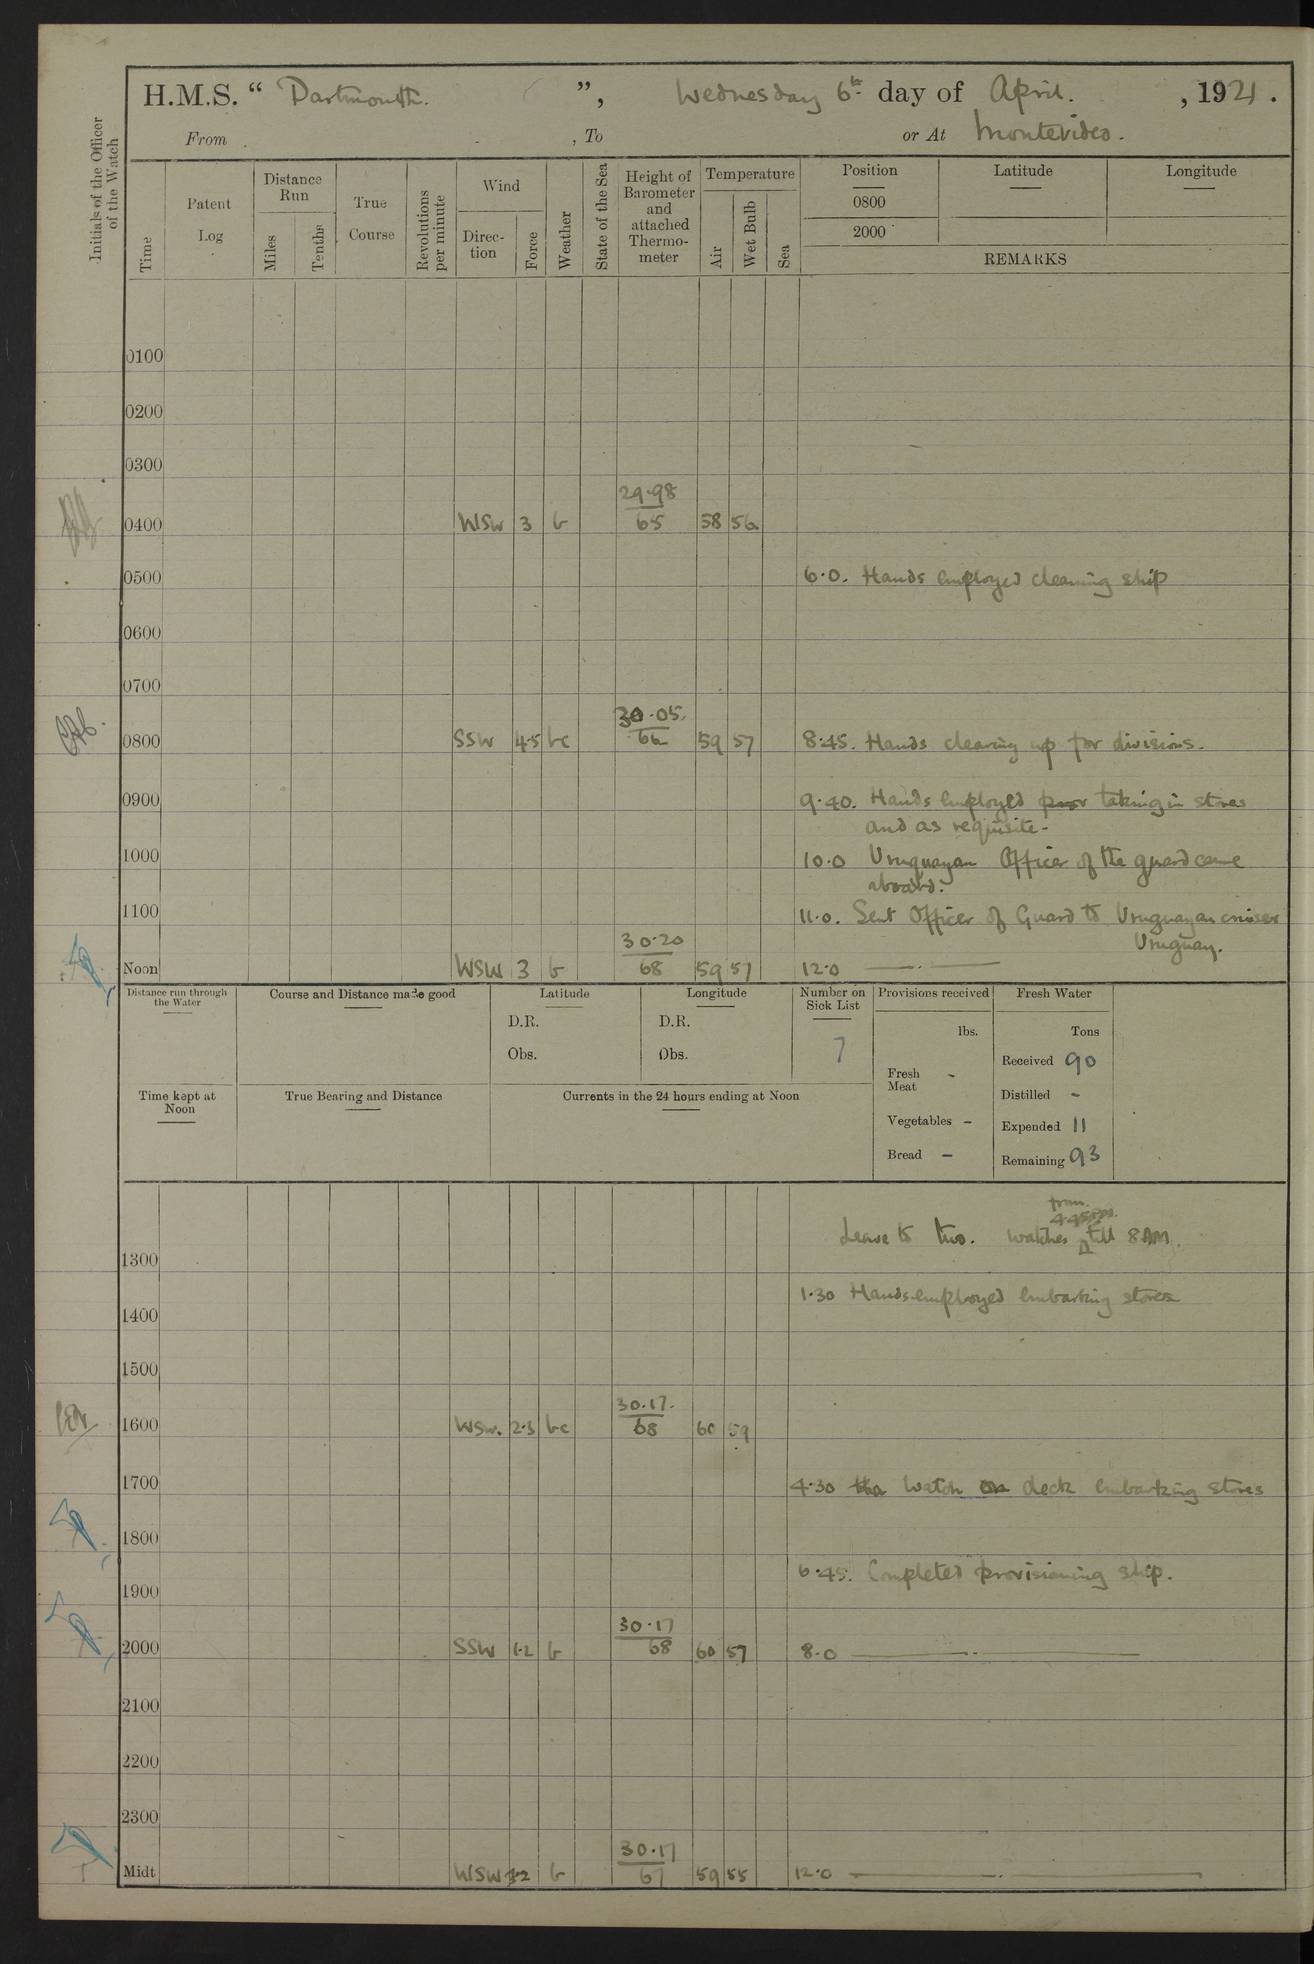 H.M.S. “ Dartmouth. ”, Wednesday 6th day of April. , 1921.
From , To or At Montevideo.
Initials of the Officer of the Watch
Time
Patent Log
Distance Run
Miles
Tenths
True Course
Revolutions per minute
Wind
Direc-tion
Force
Weather
State of the Sea
Height of Barometer and attached Thermo-meter
Temperature
Air
Wet Bulb
Sea
Position
0800
2000
Latitude
Longitude
REMARKS
0100
0200
0300
29.98
0400 WSW 3 b 65 58 56
0500 6.0. Hands employed cleaning ship
0600
0700
30.05
0800 SSW 4.5 bc 66 59 57 8.45. Hands clearing up for divisions.
0900 9.40. Hands employed taking in stores
and as requisite.
1000 10.0 Uruguayan Officer of the guard came
aboard.
1100 11.0. Sent Officer of Guard to Uruguayan cruiser
30.20 Uruguay.
Noon WSW 3 b 68 59 57 12.0
Distance run through the Water
Course and Distance made good
Latitude
D.R.
Obs.
Longitude
D.R.
Obs.
Number on Sick List
7
Provisions received
lbs.
Fresh Meat -
Vegetables -
Bread -
Fresh Water
Tons
Received 90
Distilled -
Expended 11
Remaining 93
Time kept at Noon
True Bearing and Distance
Currents in the 24 hours ending at Noon
from
4.45PM.
Leave to two. watches till 8AM.
1300
1.30 Hands employed embarking stores
1400
1500
30.17.
1600 WSW. 2.3 bc 68 60 59
1700 4.30 watch on deck embarking stores
1800
6.45. Completed provisioning ship.
1900
30.17
2000 SSW 1.2 b 68 60 57 8.0
2100
2200
2300
30.17
Midt WSW 1.2 b 67 59 55 12.0